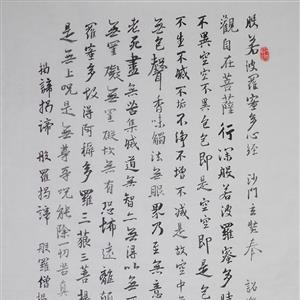 般若波羅蜜多心經 沙門玄奘奉 詔
觀自在菩薩行深般若波羅蜜多時
不異空空不異色色即是空空即是
不生不滅不垢不淨不增不減是故空
無色聲香味觸法無眼界乃至無意
老死盡無苦集滅道無智亦無得以無
無罣礙無罣礙故無有恐怖遠離顛
羅蜜多故得阿耨多羅三藐三菩提
是無上呪是無等等呪能除一切苦真
揭諦揭諦 般羅揭諦 般羅僧揭